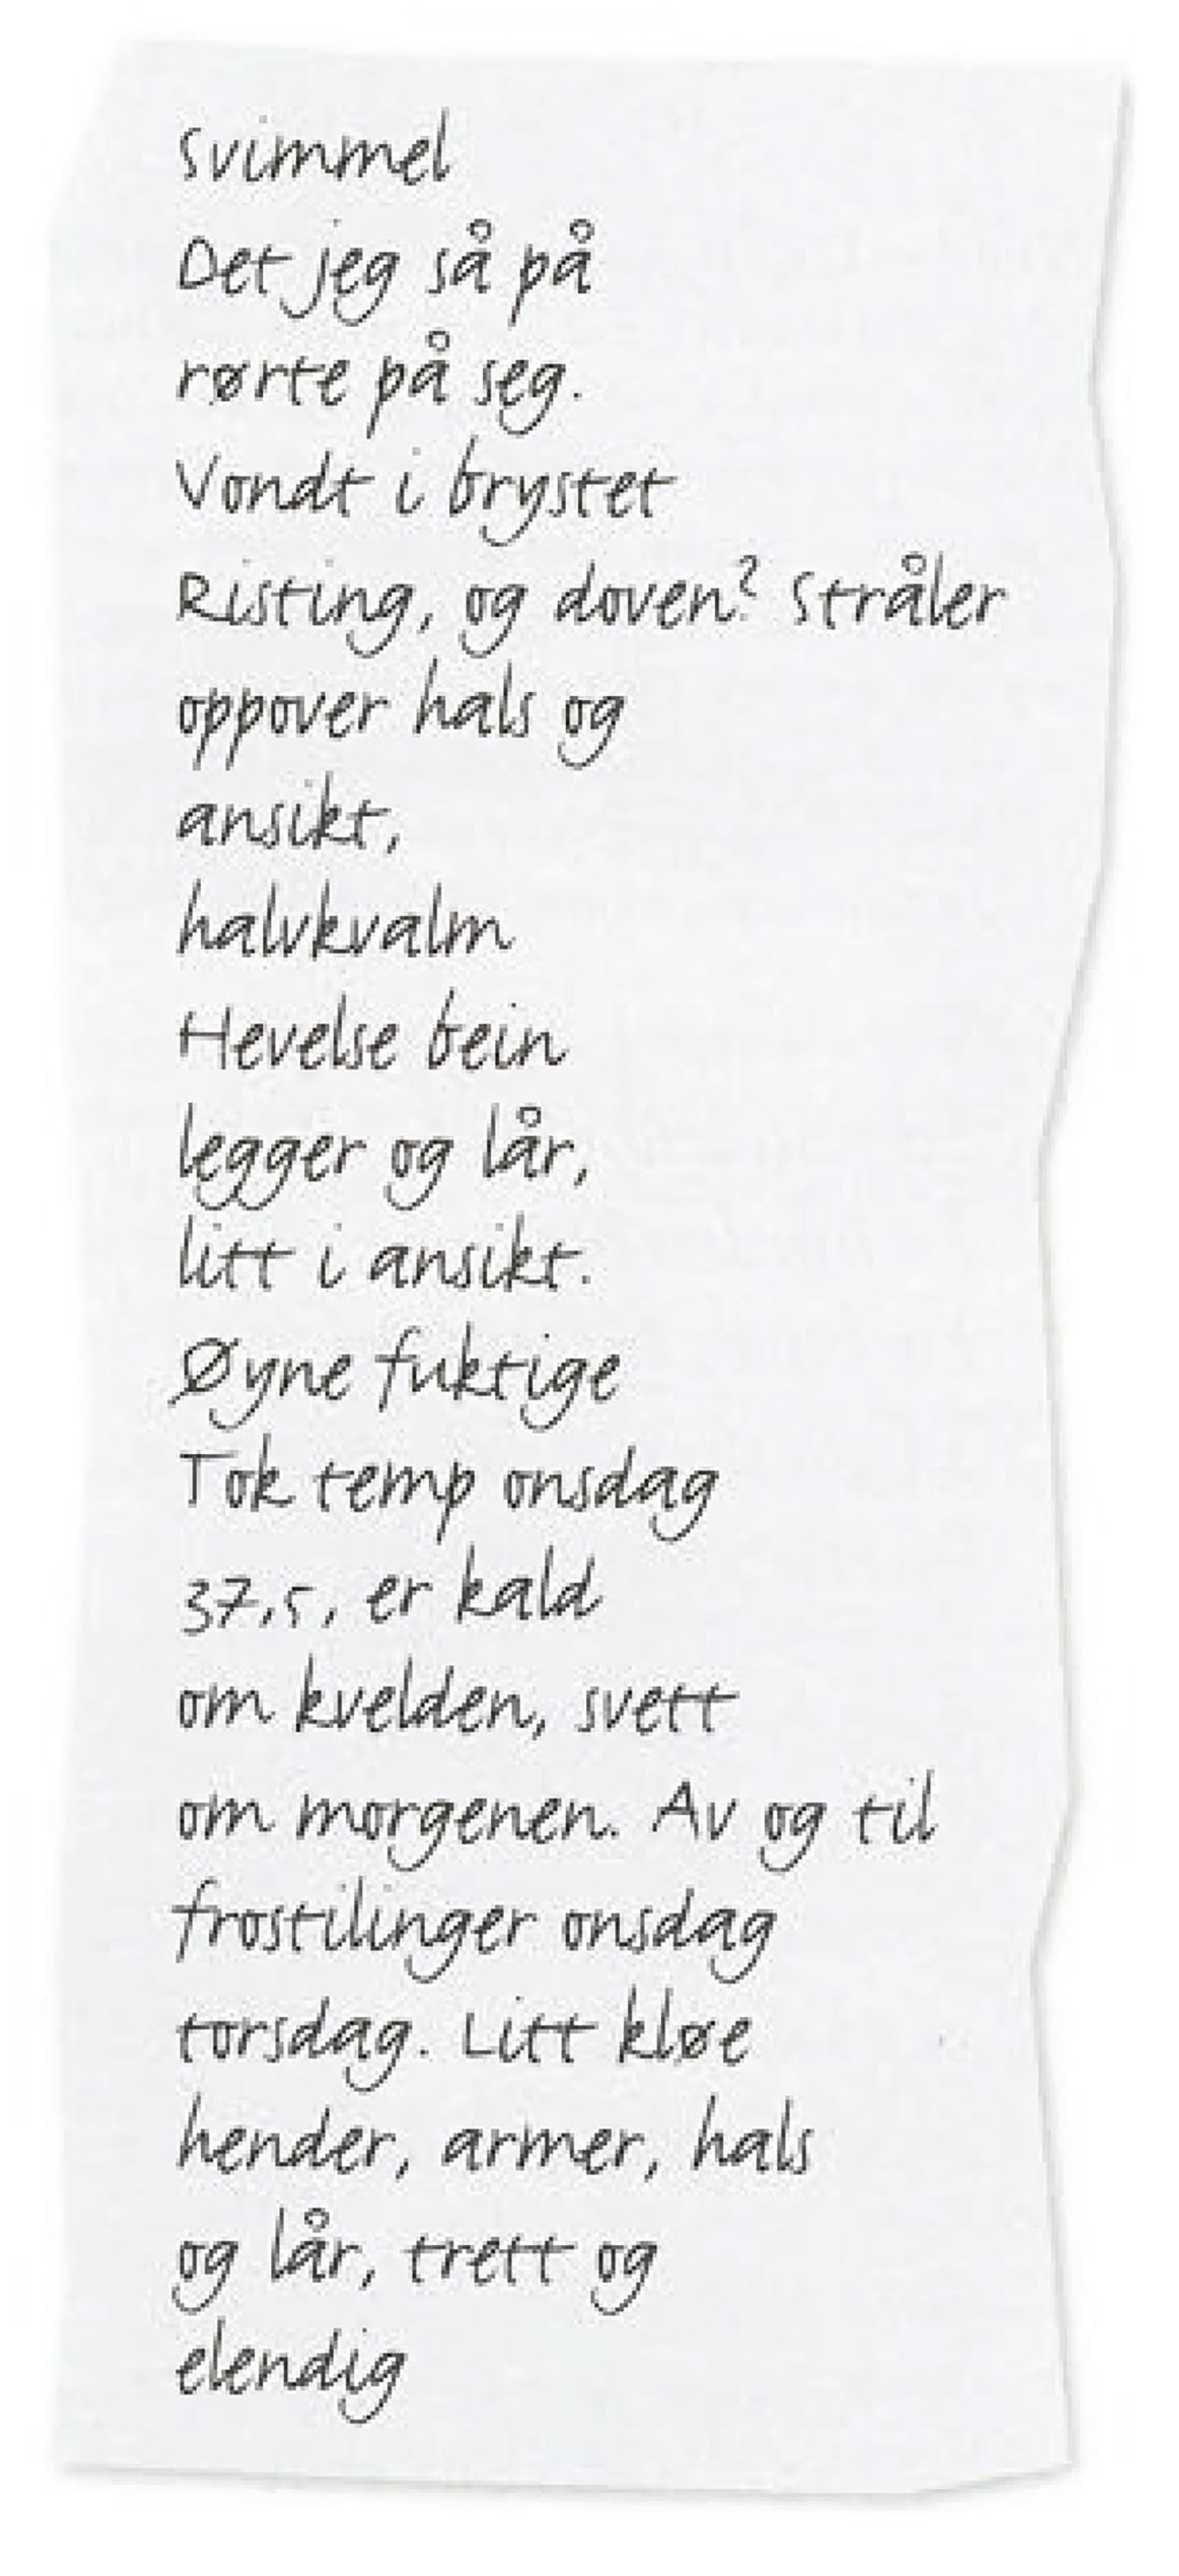 Svimmel
Det jeg så på
rørte på seg.
Vondt i brystet
Risting, og doven? Stråler
oppover hals og
ansikt,
halvkvalm
Hevelse bein
legger og lår,
litt i ansikt.
Øyne fuktige
Tok temp onsdag
37,5, er kald
om kvelden, svett
om morgenen. Av og til
frostilinger onsdag
torsdag. Litt kløe
hender, armer, hals
og lår, trett og
elendig